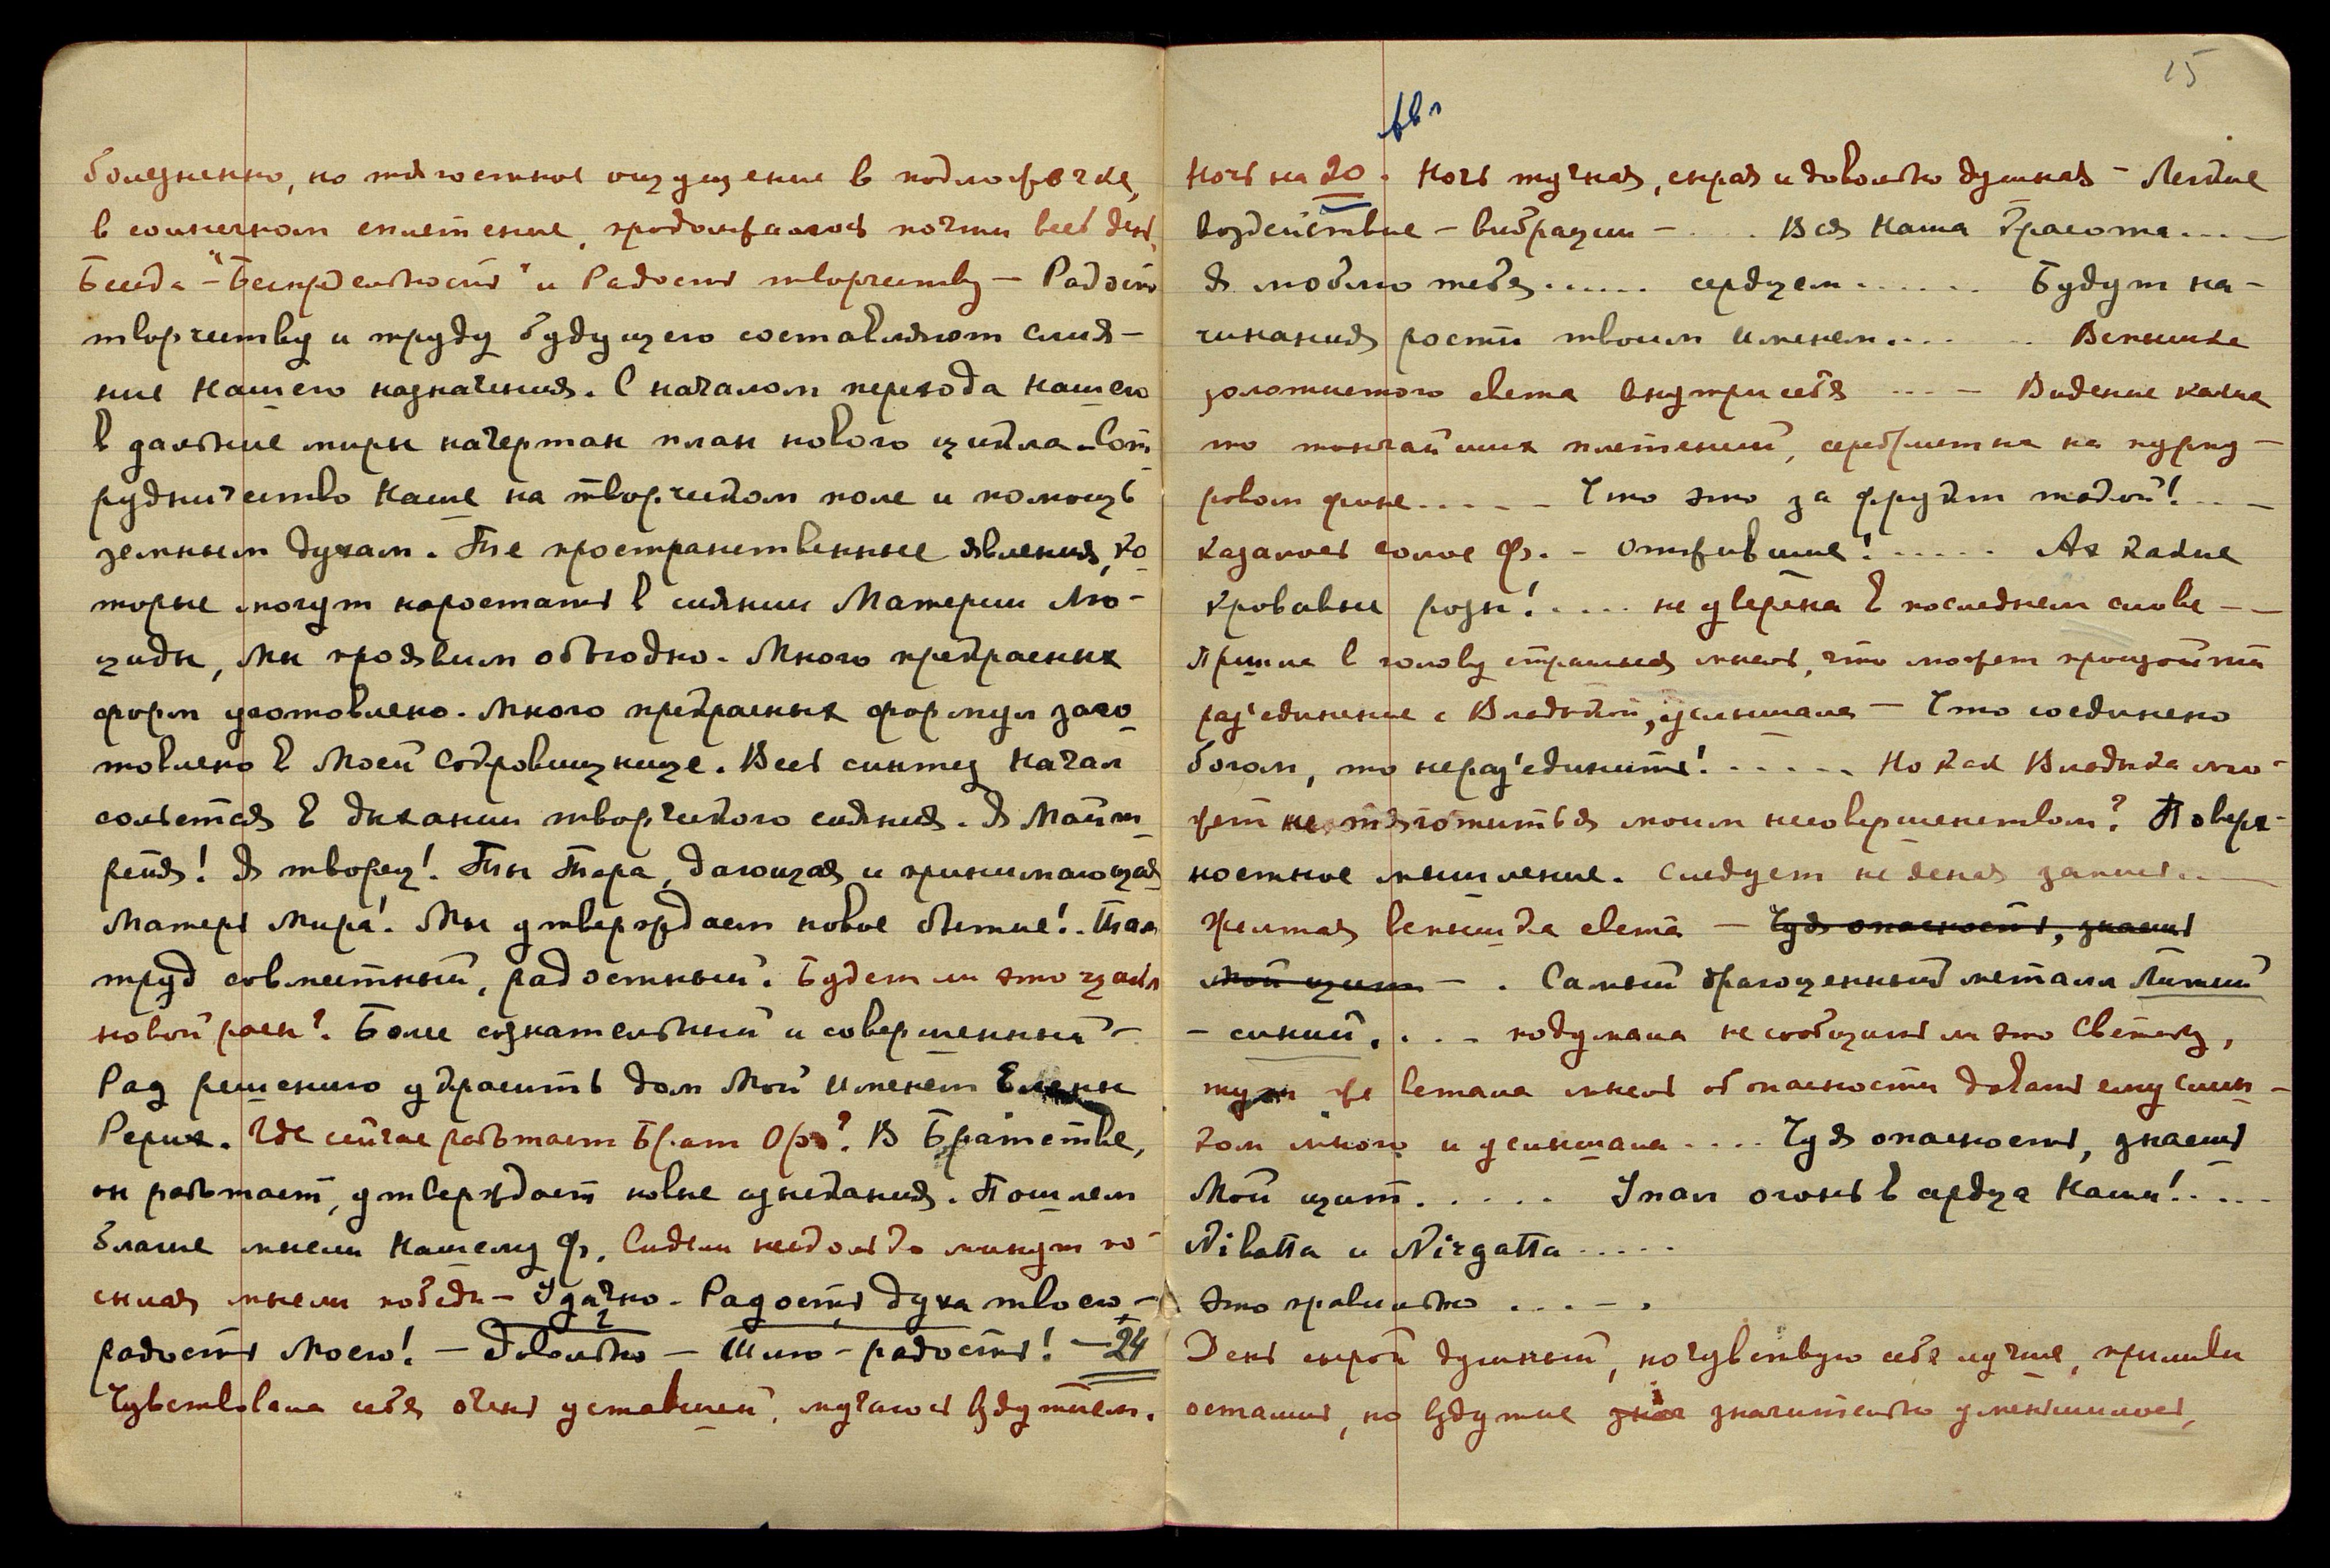 болезненно, но тягостное ощущение в подложечке,
в солнечном сплетение, продолжалось почти весь день.
Беседа - "Беспредельность" и Радость творчеству - Радость
творчеству и труду будущего составляют слия-
ние Нашего назначения. С началом перехода Нашего
в дальние миры начертан план нового цикла. Сот-
рудничество Наше на творческом поле и помощь
земным духам. Те пространственные явления, ко-
торые могут наростать в сиянии Материи Лю-
циды, мы проявим обоюдно. Много прекрасных
форм уготовлено. Много прекрасных формул заго-
товлено в Моей Сокровищнице. Весь синтез Начал
сольется в дыхании творческого сияния. Я Майт-
рейя! Я творец! Ты Тара, дающая и принимающая
Матерь Мира! Мы утверждаем новое бытие! Так
труд совместный, радостный. Будет ли это цикл
новой расы? Более сознательный и совершенный -
Рад решению украсить дом Мой именем Елены
Рерих. Где сейчас работает Брат Ор.? В Братстве,
он работает, утверждает новые изыскания. Пошлем
благие мысли Нашему Ф. Сидели несколько минут по-
сылая мысли победы - Удачно. Радость духа твоего -
радость Моего! - Довольно - Шлю - радость! - 24
Чувствовала себя очень уставшей, мучилась вздутием.
15
Авг
Ночь на 20. Ночь тучная, сырая и довольно душная - Легкие
воздействие - вибрации - . . . Вся Наша красота....-
Я люблю тебя...... сердцем...... Будут на-
чинания рости твоим именем.... .. Вспышка
золотистого света внутри себя ...- Видение каких
то тончайших плетений, серебристых на пурпу-
ровом фоне..... Что это за фрукт такой!...-
Казалось Ф. - Отжившие!..... Ах какие
кровавые розы!.... не уверена в последнем слове --
Пришла в голову страшная мысль, что может произойти
раз'единение с Владыкой, услышала - Что соединено
богом, то нераз'единить!..... Но как Владыка мо-
жет не тяготиться моим несовершенством? Поверх-
ностное мышление. Следует неясная запись..-
Желтая вспышка света - Чуя опасность, знаешь
Мой щит - . Самый драгоценный металл Литий
- синий. . . - подумала не сообщить ли это Светику,
тут же встала мысль об опасности давать ему слиш-
ком много и услышала.... Чуя опасность, знаешь
Мой щит..... Упал огонь в сердца Наши!....
Nibatta и Nirgatta.....
Это правильно . . . - .
День сырой душный, но чувствую себя лучше, приливы
остались, но вздутие знач значительно уменьшилось,